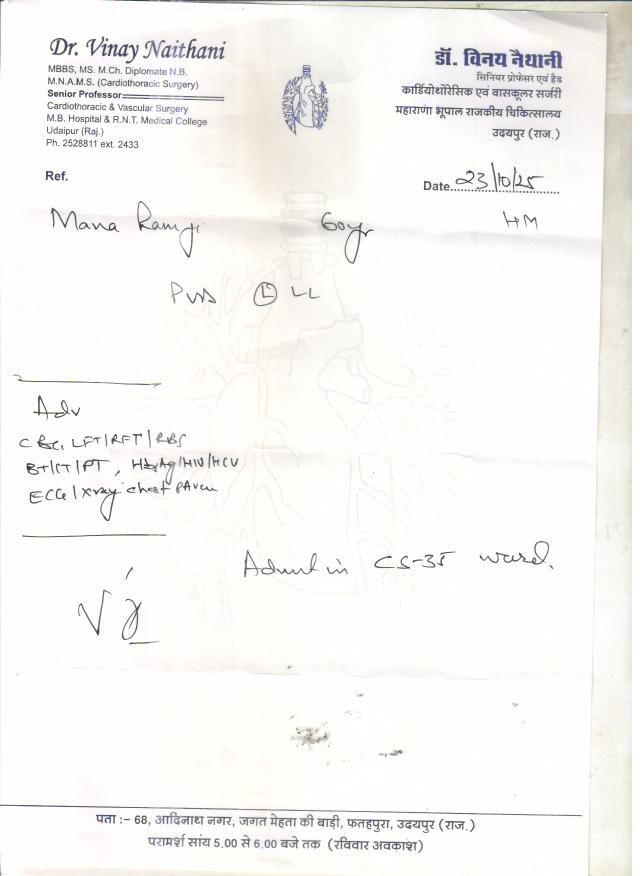 Dr. Vinay Naithani
MBBS, MS. M.Ch. Diplomate N.B.
M.N.A.M.S. (Cardiothoracic Surgery)
Senior Professor
Cardiothoracic & Vascular Surgery
M.B. Hospital & R.N.T. Medical College
Udaipur (Raj.)
Ph. 2528811 ext. 2433
डॉ. विनय नैथानी
सिनियर प्रोफेसर एवं हैड
कार्डियोथोरेसिक एवं वासकूलर सर्जरी
महाराणा भूपाल राजकीय चिकित्सालय
उदयपुर (राज.)
Ref.
Date 23/10/25
Mana Ramji 60yr HM
PVD Ⓛ LL
Adv
CBC, LFT/RFT/RBS
BT/CT/PT, HbsAg/HIV/HCV
ECG/Xray chest PAview
Admit in CS-35 ward.
पता :– 68, आदिनाथ नगर, जगत मेहता की बाड़ी, फतहपुरा, उदयपुर (राज.)
परामर्श सांय 5.00 से 6.00 बजे तक (रविवार अवकाश)